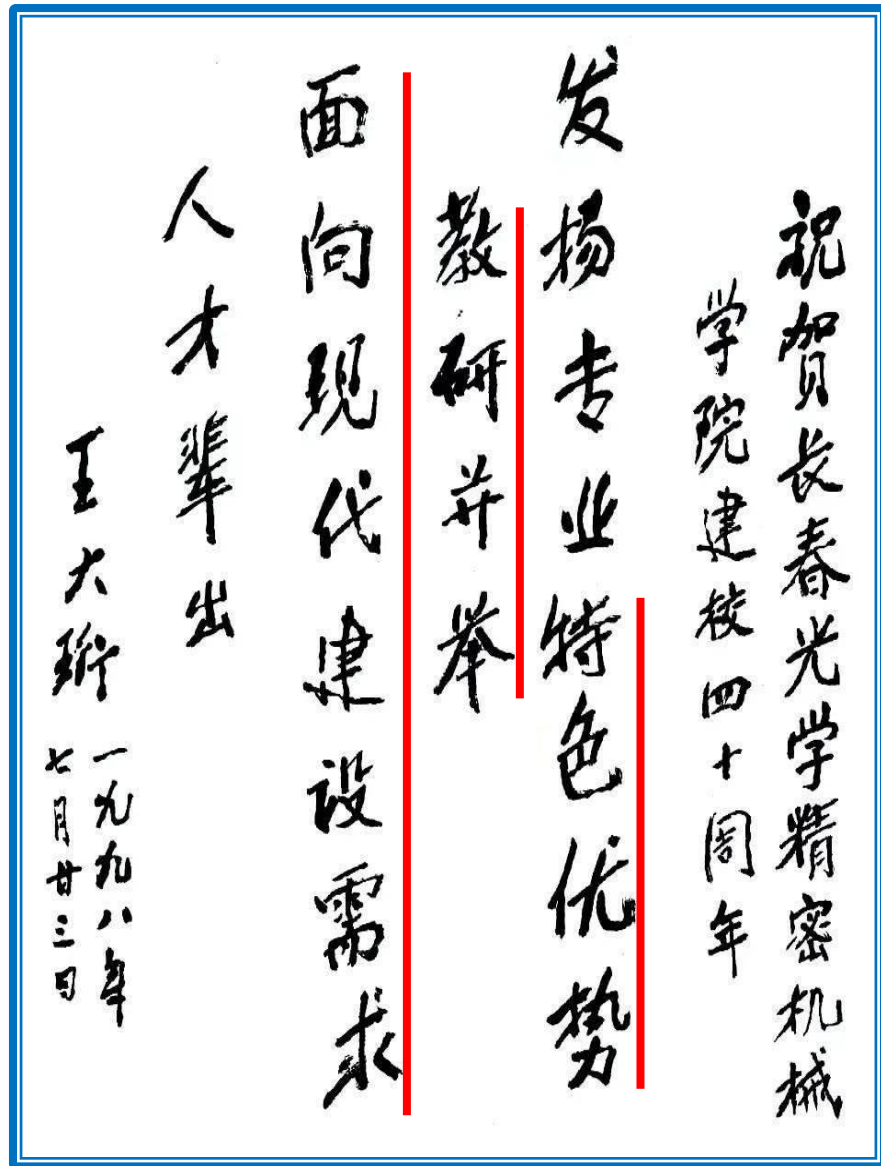 祝贺长春光学精密机械
学院建校四十周年
发扬专业特色优势
教研并举
面向现代建设需求
人才辈出
王大珩
一九九八年
七月廿三日